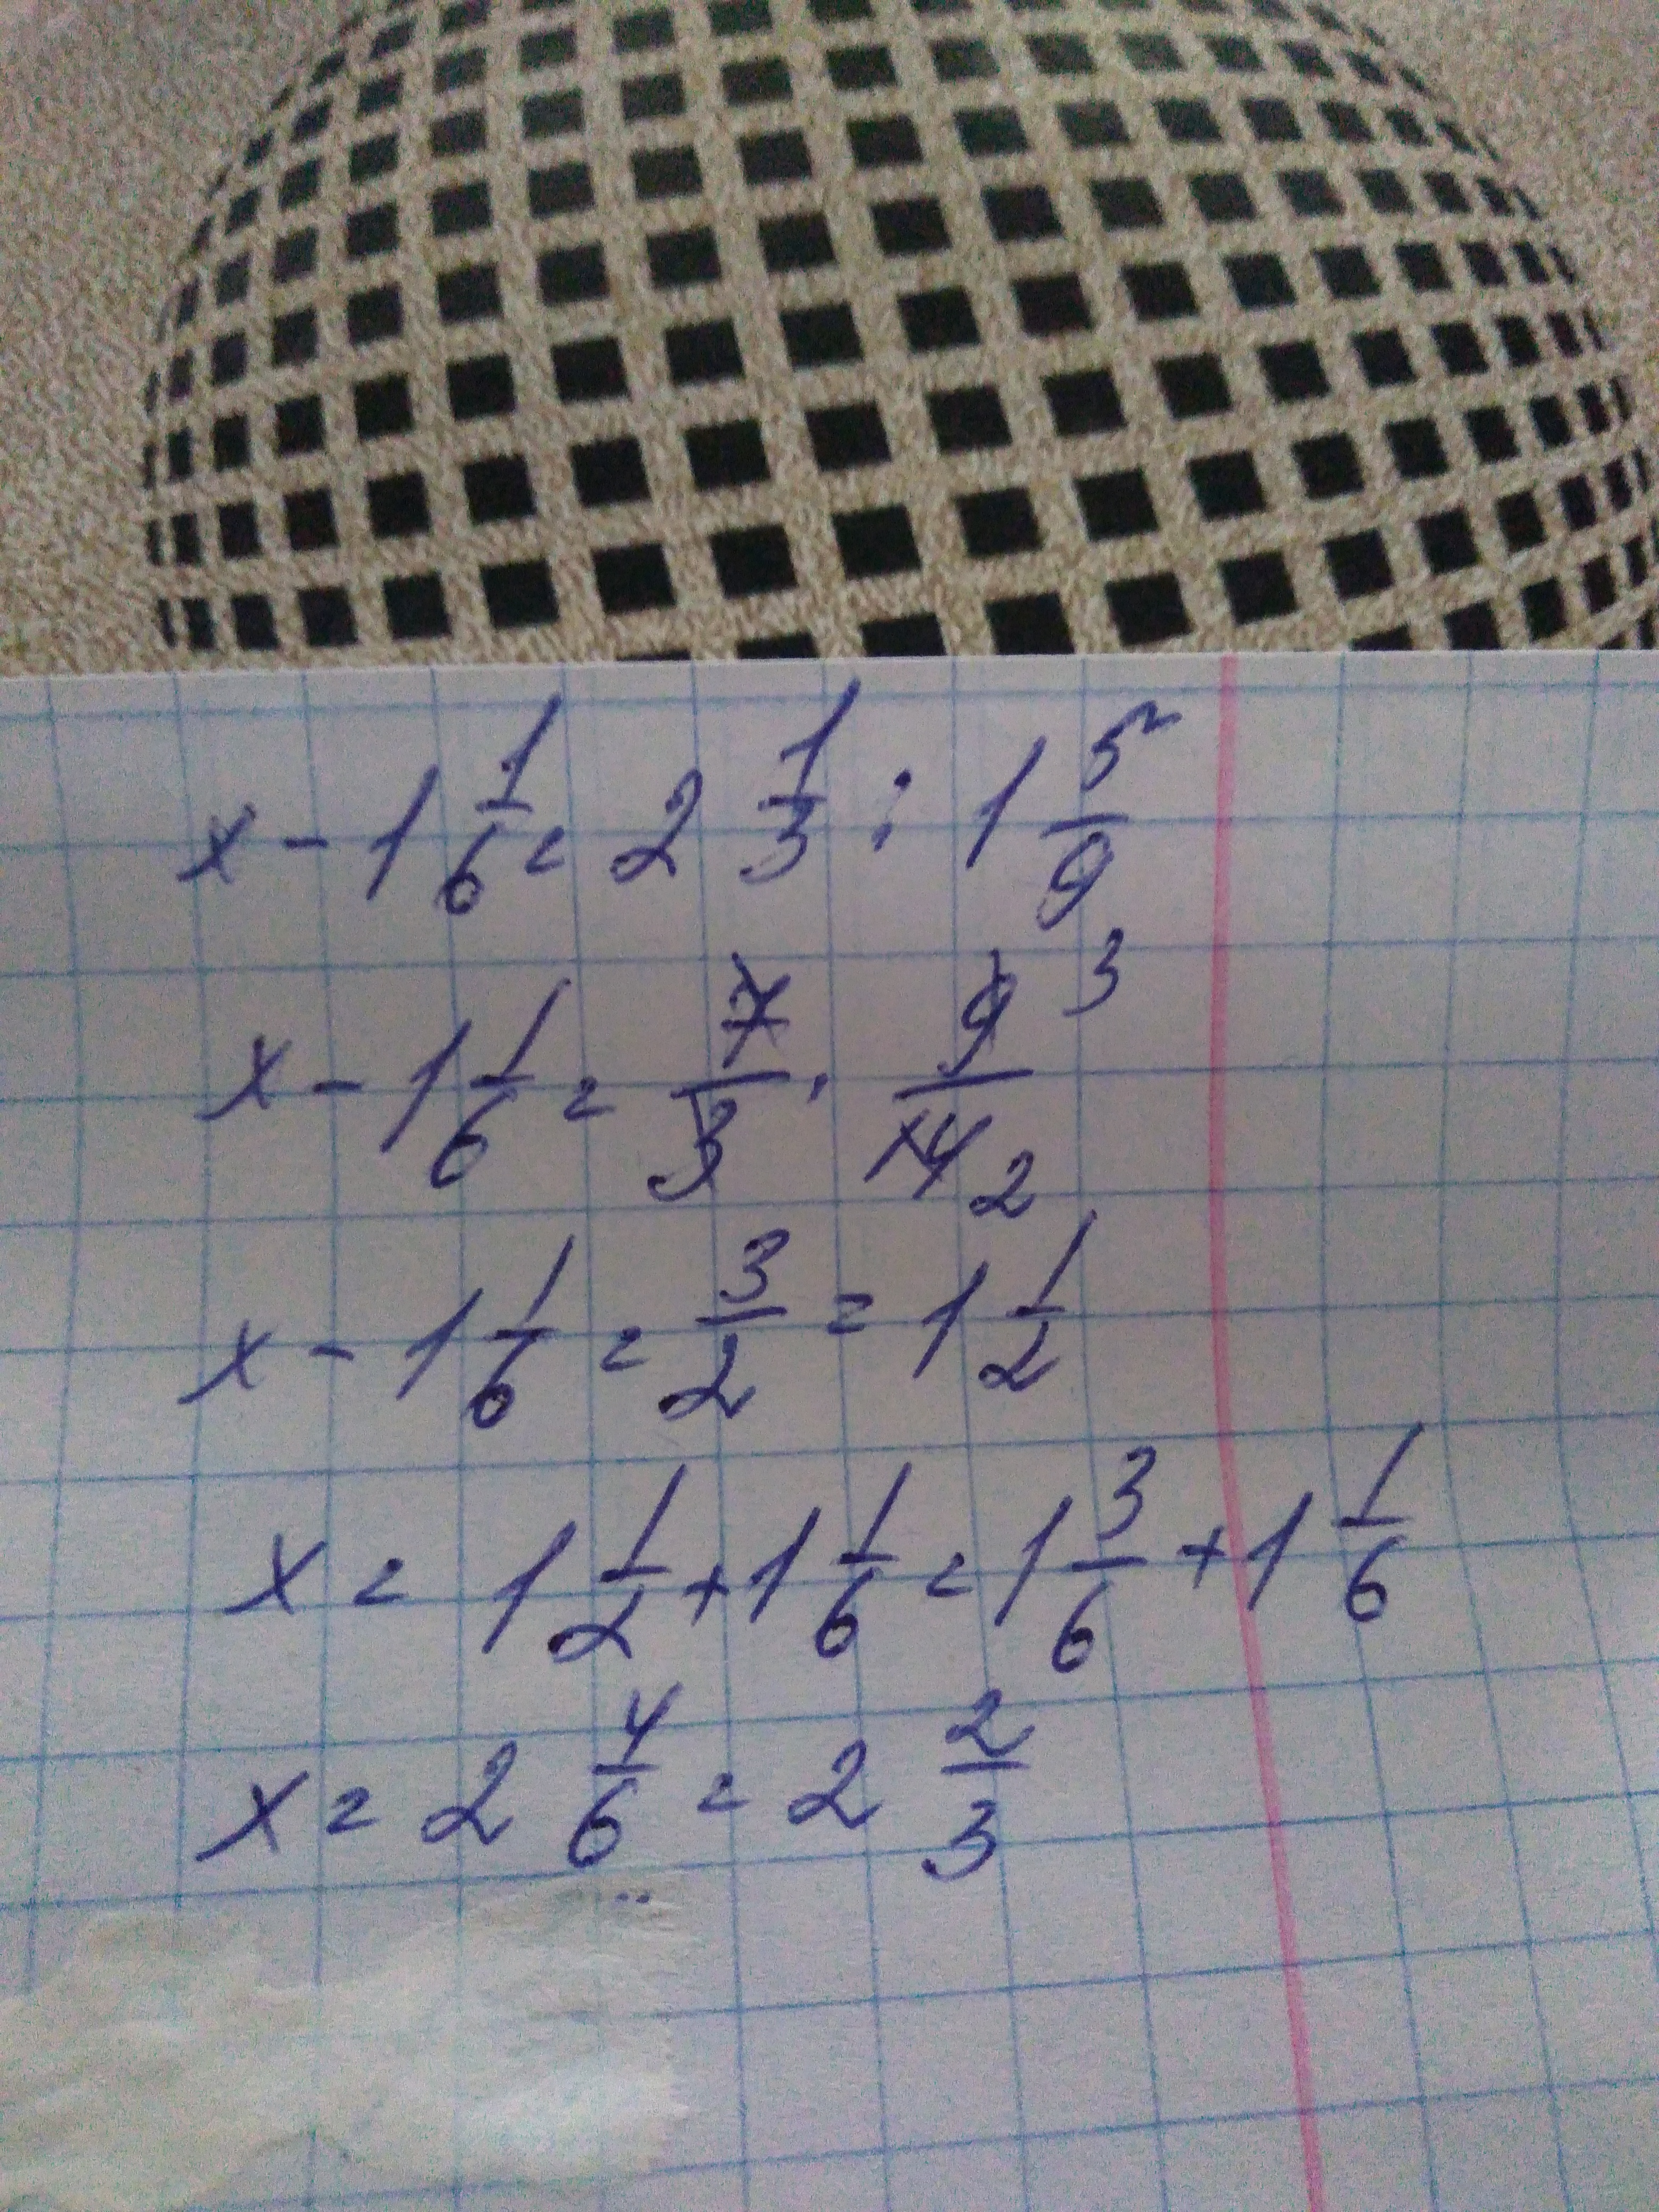 x - 1 1/6 = 2 1/3 : 1 5/9
x - 1 1/6 = 7/3 · 9/14 3 2
x - 1 1/6 = 3/2 = 1 1/2
x = 1 1/2 + 1 1/6 = 1 3/6 + 1 1/6
x = 2 4/6 = 2 2/3